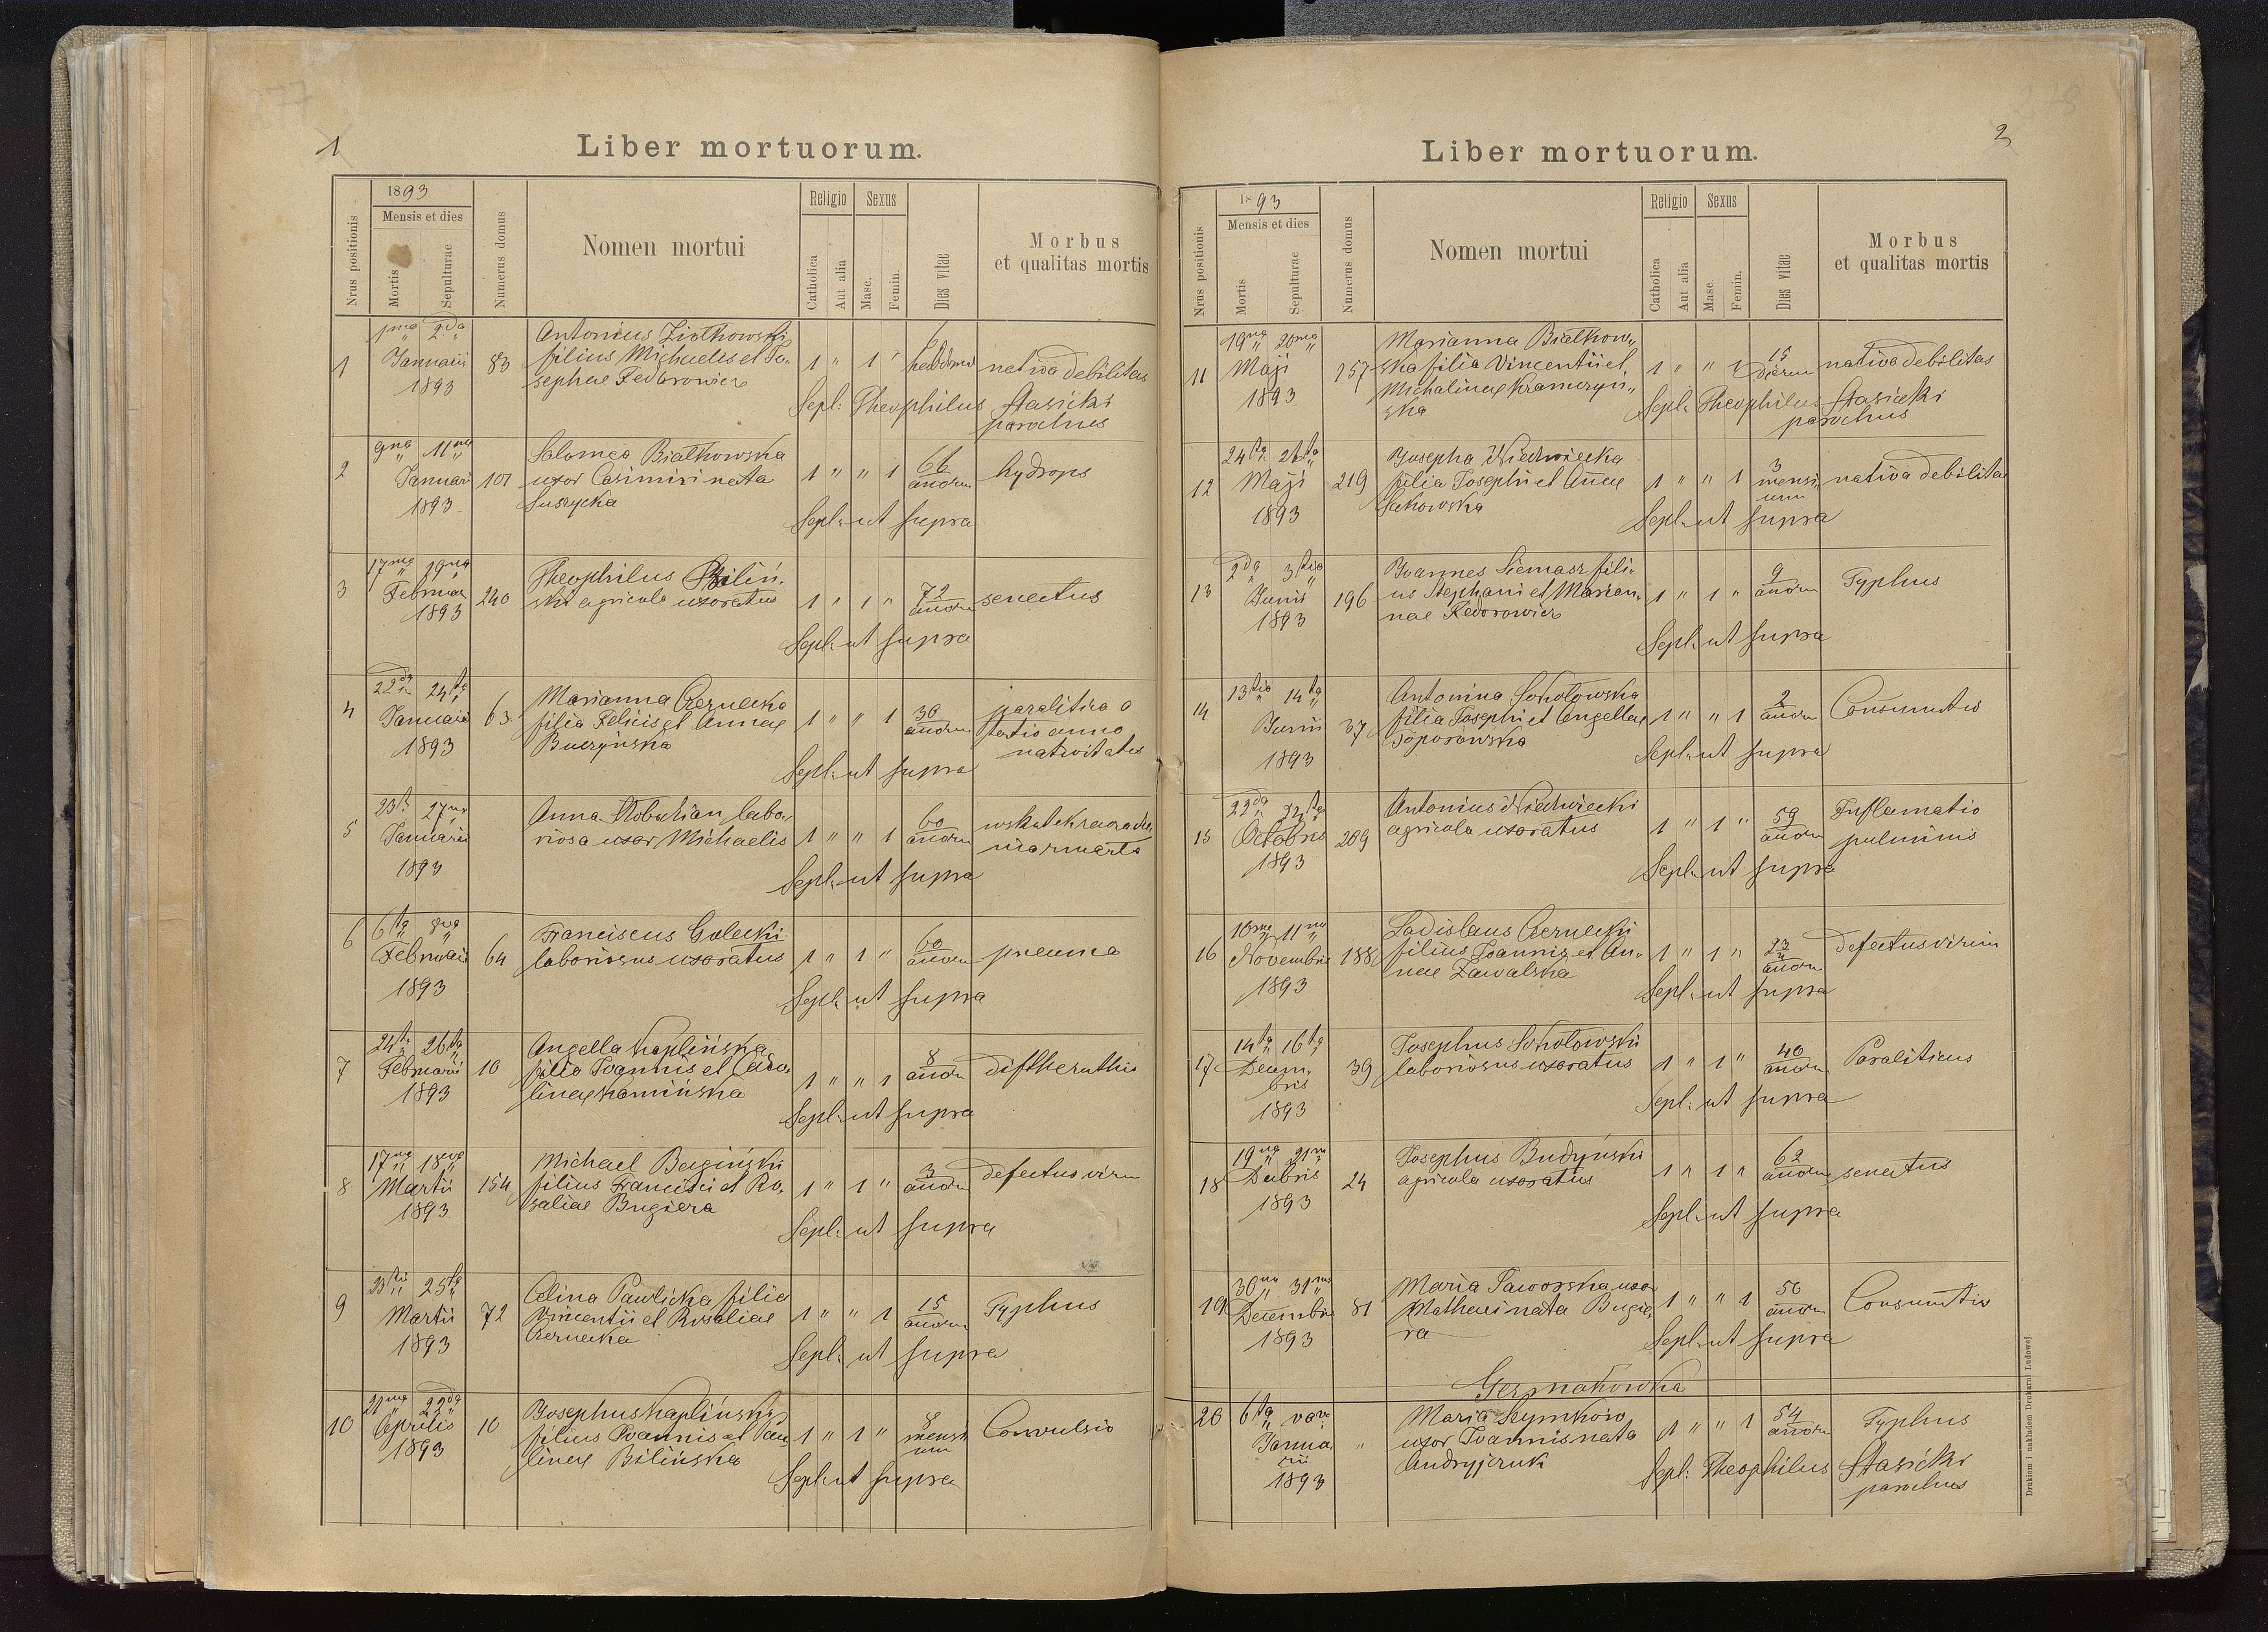 1
Liber mortuorum.
Nrus positionis
1893
Mensis et dies
Mortis
Sepulturae
Numerus domus
Nomen mortui
Religio
Catholica
Aut alia
Sexus
Masc.
Femin.
Dies vitae
Morbus
et qualitas mortis
1ma 2da
Antonius Ziołkowski
1 Januarii 83 filius Michaelis et Jo-
1893 sephae Fedorowicz
1 " 1 " nativa debilitas
Sepl: Theophilus Stasicki
parochus
9na 11ma
Salomea Białkowska
2 Januarii 101 uxor Casimiri nata 1 " " 1 66 hydrops
1893 Suszycka
annorum
Sepl. ut supra
17ma 19na
Theophilus Biliń-
3 Februar 240 ski agricola uxoratus 1 " 1 " 72 senectus
1893 annorum
Sepl. ut supra
22da 24ta
Marianna Czernecka
4 Januarii 63 filia Felicis et Annae 1 " " 1 36 paralitica a
1893 Buczyńska annorum tertio anno
nativitatis
Sepl. ut supra
23 27ma
Anna labo-
5 Januarii riosa uxor Michaelis 1 " " 1 60 wskutek
1893 annorum
Sepl. ut supra
6ta 8va
6 Franciscus Golecki
Februarii 64 laboriosus uxoratus 1 " 1 " 60 pneuma
1893 annorum
Sepl. ut supra
24ta 26ta
Angella Kaplińska
7 Februarii 10 filia Joannis et Caro-
1893 linae Kamińska
1 " " 1 8 diftheruthis
annorum
Sepl. ut supra
17ma 18va
Michael Bugiński
8 Martii 154 filius Francisci et Ro-
1893 saliae Bugiera
1 " 1 " 3 defectus viriu
annorum
Sepl. ut supra
23tii 25ta
Celina Pawlicka filia
9 Martii 72 Vincentii et Rosaliae
1893 Czernecka
1 " " 1 15 Typhus
annorum
Sepl. ut supra
21ma 22da
Josephus Kapliński
10 Aprilis 10 filius Joannis et Pau-
1893 linae Bilińska
1 " 1 " 8 Convulsio
mensi
um
Sepl. ut supra
2
Liber mortuorum.
Nrus positionis
1893
Mensis et dies
Mortis
Sepulturae
Numerus domus
Nomen mortui
Religio
Catholica
Aut alia
Sexus
Masc.
Femin.
Dies vitae
Morbus
et qualitas mortis
19na 20ma
Marianna Białkow-
11 Maji 157 ska filia Vincentii et
1893 Michalinae Krameryń-
ska
1 " " 1 15 dierum nativa debilitas
Sepl. Theophilus Stasicki
parochus
24ta 26ta
Josepha Niedwiecka
12 Maji 219 filia Josephi et Annae
1893 Sakowska
1 " " 1 3 mensi- um nativa debilitas
Sepl. ut supra
2da 3tia
Joannes Siemasz fili-
13 Junii 196 us Stephani et Marian-
1893 nae Fedorowicz
1 " 1 " 9 Typhus
annorum
Sepl. ut supra
13tia 14ta
Antonina Sokołowska
14 Junii 37 filia Josephi et Angellae
1893 Toporowska
1 " " 1 2 Consumtio
annorum
Sepl. ut supra
22da 24ta
Antonius Niedwiecki
15 Octobris 209 agricola uxoratus
1893
1 " 1 " 59 Inflamatio
annorum pulminis
Sepl. ut supra
10ma 11ma
Ladislaus Czernecki
16 Novembris 188 filius Joannis et An-
1893 nae Zawalska
1 " 1 " defectus virium
annorum
Sepl. ut supra
14ta 16ta
Josephus Sokołowski
17 Decem- 39 laboriosus uxoratus
bris
1893
1 " 1 " 40 Paraliticus
annorum
Sepl. ut supra
19na 21ma
Josephus Budyński
18 Debris 24 agricola uxoratus
1893
1 " 1 " 62 senectus
annorum
Sepl. ut supra
30ma 31ma
Maria Jaworska uxor
19 Decembris 81 Mathaei nata Bugie-
1893 ra
1 " " 1 50 Consumtio
annorum
Sepl. ut supra
Germakówka
20 6ta
Maria Szymków
Janua- " uxor Joannis nata
rii Andryjczuk
1893
1 " " 1 54 Typhus
annorum
Sepl: Theophilus Stasicki
parochus
Drukiem i nakładem Drukarni Ludowej.